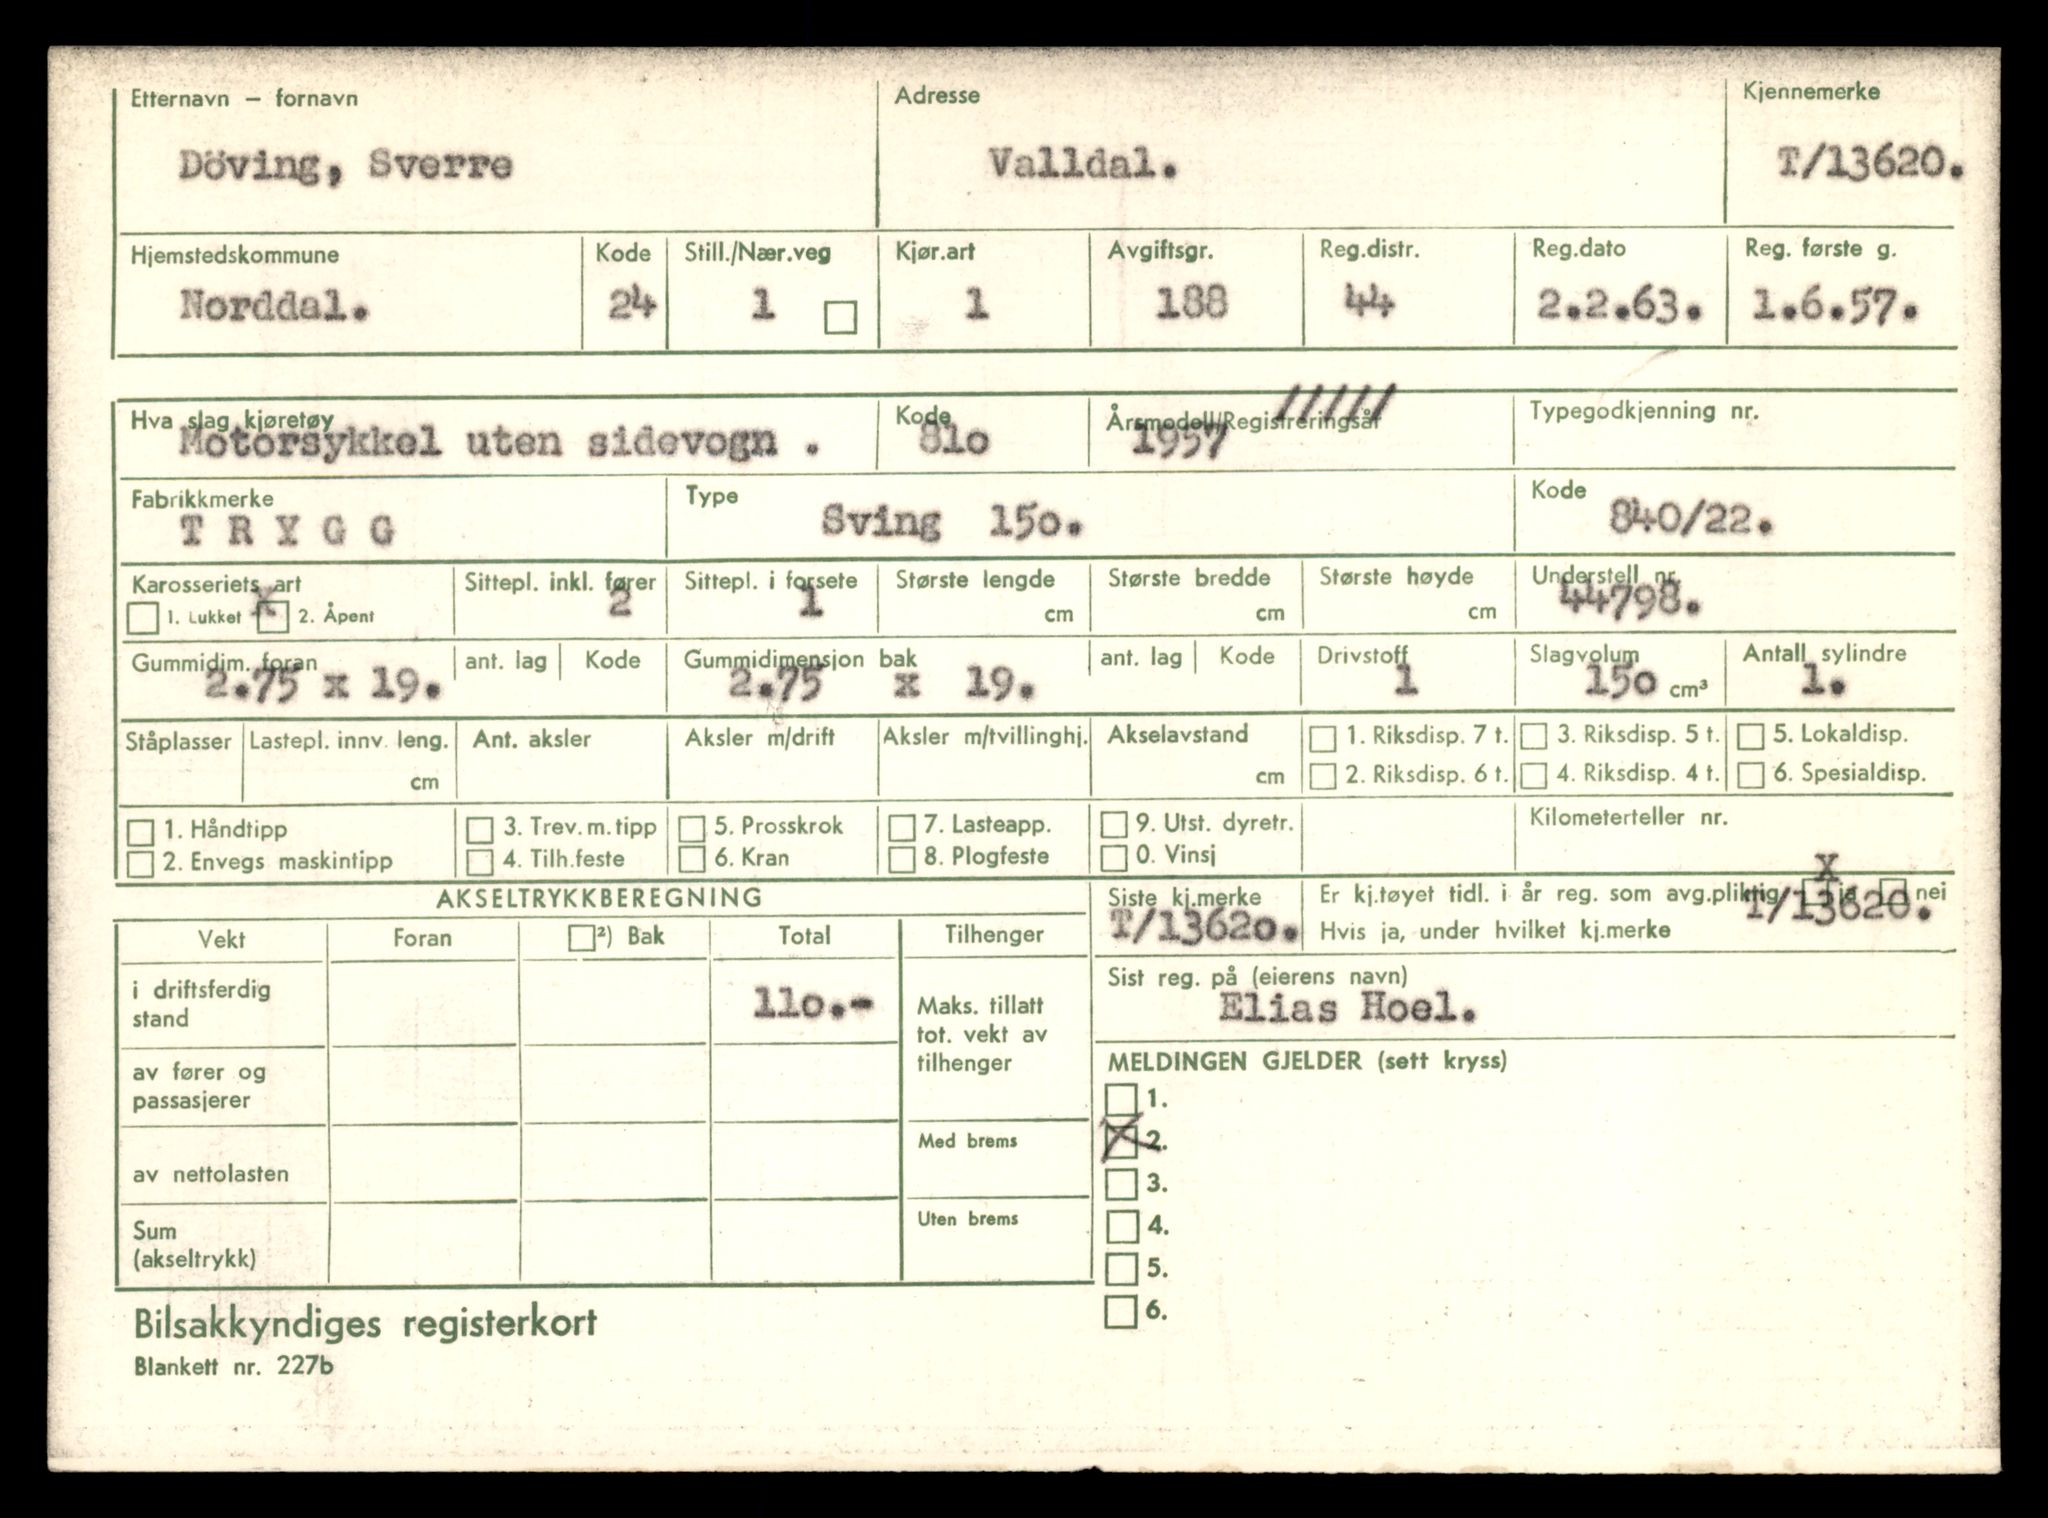 Etternavn – fornavn Adresse Kjennemerke
Döving, Sverre Valldal. T/13620.
Hjemstedskommune Kode Still./Nær.veg Kjør.art Avgiftsgr. Reg.distr. Reg.dato Reg. første g.
Norddal. 24 1 1 188 44 2.2.63. 1.6.57.
Hva slag kjøretøy Kode Årsmodell/Registreringsår Typegodkjenning nr.
Motorsykkel uten sidevogn . 81o 1957
Fabrikkmerke Type Kode
T R Y G G Sving 15o. 840/22.
Karosseriets art Sittepl. inkl. fører Sittepl. i forsete Største lengde Største bredde Største høyde Understell nr.
x 2 1 44798.
1. Lukket 2. Åpent cm cm cm
Gummidim. foran ant. lag Kode Gummidimensjon bak ant. lag Kode Drivstoff Slagvolum Antall sylindre
2.75 x 19. 2.75 x 19. 1 15o cm³ 1.
Ståplasser Lastepl. innv. leng. Ant. aksler Aksler m/drift Aksler m/tvillinghj. Akselavstand 1. Riksdisp. 7 t. 3. Riksdisp. 5 t. 5. Lokaldisp.
cm cm 2. Riksdisp. 6 t. 4. Riksdisp. 4 t. 6. Spesialdisp.
1. Håndtipp 3. Trev. m. tipp 5. Prosskrok 7. Lasteapp. 9. Utst. dyretr. Kilometerteller nr.
2. Envegs maskintipp 4. Tilh.feste 6. Kran 8. Plogfeste 0. Vinsj
x
AKSELTRYKKBEREGNING Siste kj.merke Er kj.tøyet tidl. i år reg. som avg.pliktig ja nei
T/1362o. T/13620.
Vekt Foran ²) Bak Total Tilhenger Hvis ja, under hvilket kj.merke
i driftsferdig stand 11o.- Maks. tillatt tot. vekt av tilhenger
Sist reg. på (eierens navn)
Elias Hoel.
av fører og passasjerer
MELDINGEN GJELDER (sett kryss)
1.
Med brems X 2.
av nettolasten 3.
Uten brems 4.
Sum (akseltrykk) 5.
6.
Bilsakkyndiges registerkort
Blankett nr. 227b